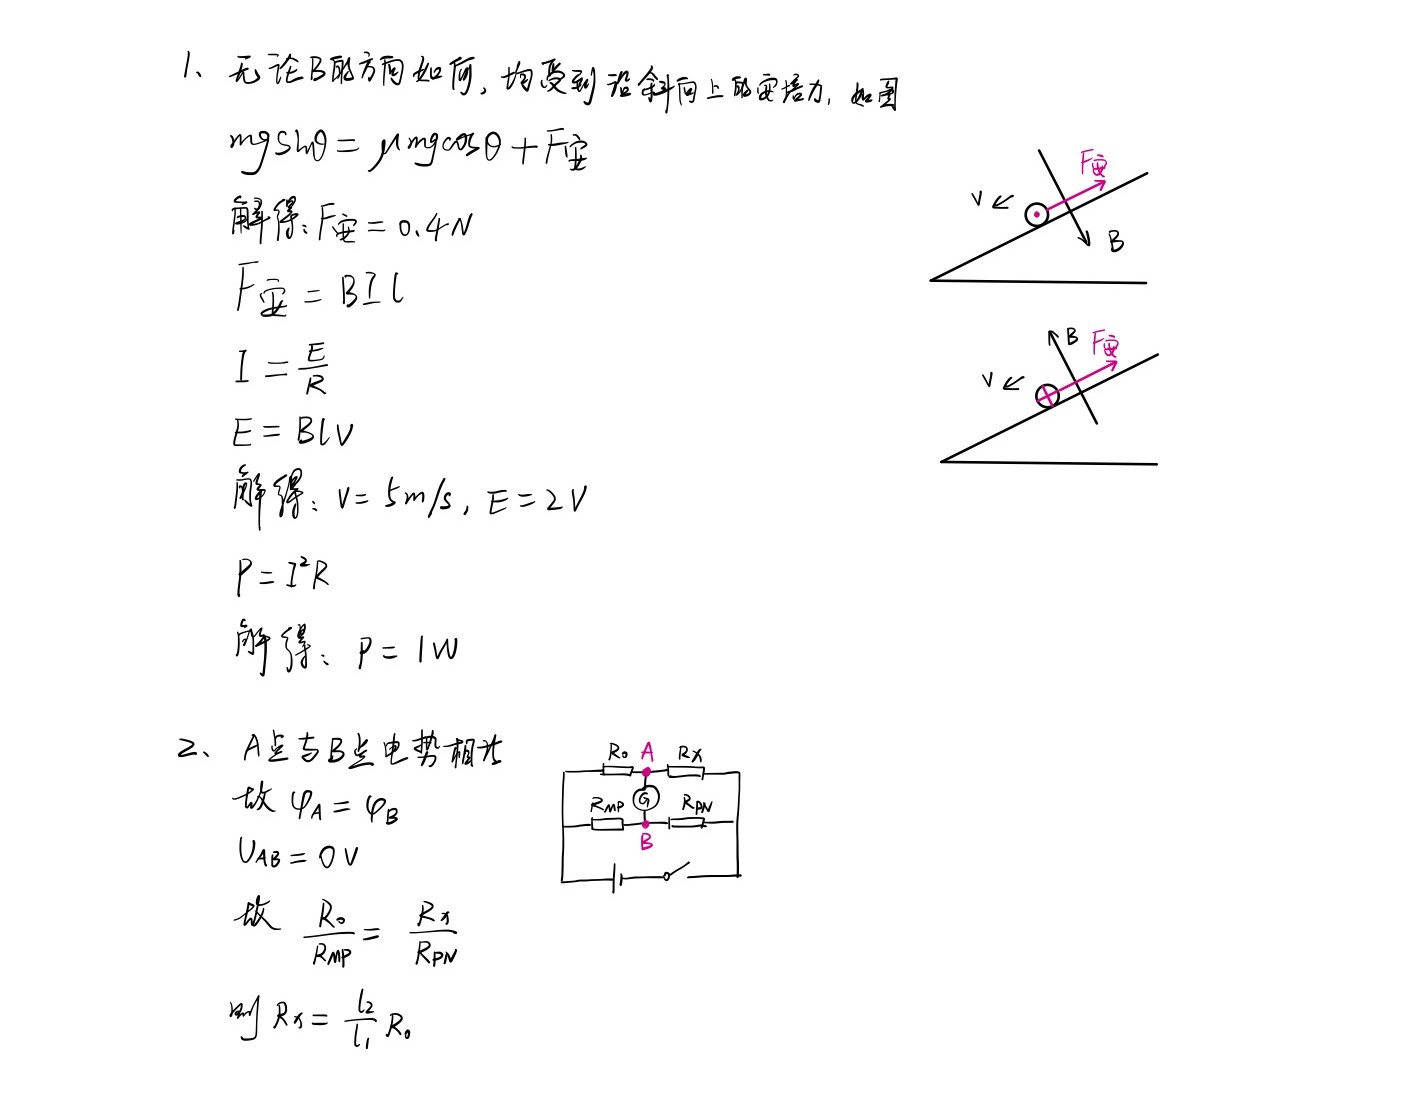 1、无论B的方向如何，均受到沿斜向上的安培力，如图
mgsinθ=μmgcosθ+F安
解得：F安=0.4N
F安=BIl
I=E/R
E=Blv
解得：v=5m/s，E=2V
P=I²R
解得：P=1W
F安
v
B
B
F安
v
2、A点与B点电势相等
故 φA=φB
UAB=0V
故 R₀/RMP=Rx/RPN
则 Rx=l₂/l₁ R₀
R₀ A Rx
RMP G RPN
B